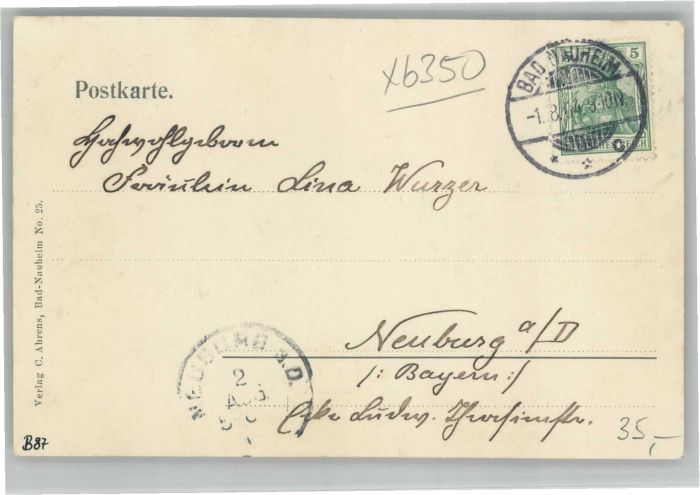 x6350
5
BAD NAUHEIM
-1.8.
3-10N.
Postkarte.
Hochwohlgeboren
Fräulein Lina Wurzer
Neuburg a/D
/: Bayern :/
Ecke Ludw. Theresienstr.
NEUBURG a.D.
2
AUG
5
35,-
Verlag C. Ahrens, Bad-Nauheim No. 25.
B87